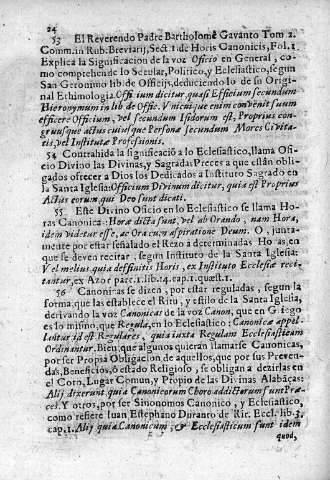 24
53 El Reverendo Padre Bartholomè Gavanto Tom 2.
Comm. in Rub: Breviarij, Sect 1. de Horis Canonicis, Fol. 1.
Explica la Significacion de la voz Oficio en General, co-
mo comprehende lo Secular, Politico, y Eclesiastico, segun
San Geronimo lib. de Officijs, deduciendo lo de su Origi-
nal Ethimologia Offitium dicitur, quasi Efficium secundum
Hieronymum in lib de Offic. Vnicuique enim convenit suum
efficere Officium, vel secundum Isidorum est, Proprius con-
gruusque actus cuiusque Personæ secundum Mores Civita-
tis, vel Institutæ Professionis.
54 Contrahida la significació a lo Eclesiastico, llama Ofi-
cio Divino las Divinas, y Sagradas Preces a que están obli-
gados ofrecer a Dios los Dedicados a Instituto Sagrado en
la Santa Iglesia: Officium Divinum dicitur, quia est Proprius
Actus eorum qui Deo sunt dicati.
55 Este Divino Oficio en lo Eclesiastico se llama Ho-
ras Canonica: Hora dicta sunt, vel ab Orando, nam Hora,
idem videtur esse, ac Ora cum aspiratione Deum. O, junta-
mente por estar señalado el Rezo à determinadas Horas, en
que se deven recitar, segun Instituto de la Santa Iglesia:
Vel melius quia deffinitis Horis, ex Instituto Ecclesiæ reci-
tantur, ex Azor parc. 1. lib. 14. cap 1. quæst. 1.
56 Canonicas se dizen, por estar reguladas, segun la
forma, que las establece el Ritu, y estilo de la Santa Iglesia,
derivando la voz Canonicas de la voz Canon, que en Griego
es lo mismo, que Regula, en lo Eclesiastico: Canonicæ appel-
lentur id est Regulares, quia iuxta Regulam Ecclesiasticam
Ordinantur. Bien, que algunos quieran llamarse Canonicas,
por ser Propia Obligacion de aquellos, que por sus Preven-
das, Beneficios, ò estado Religioso, se obligan a dezirlas en
el Coro, Lugar Comun, y Propio de las Divinas Alabáças:
Alij dixerunt quia Canonicorum Choro addictarum sunt Præ-
ces. Y otros, por ser Sinonomos Canonico, y Eclesiastico,
como refiere Iuan Estephano Duranto de Rir. Eccl. lib. 3.
cap. 1. Alij quia Canonicum, & Ecclesiasticum sunt idem
quod,